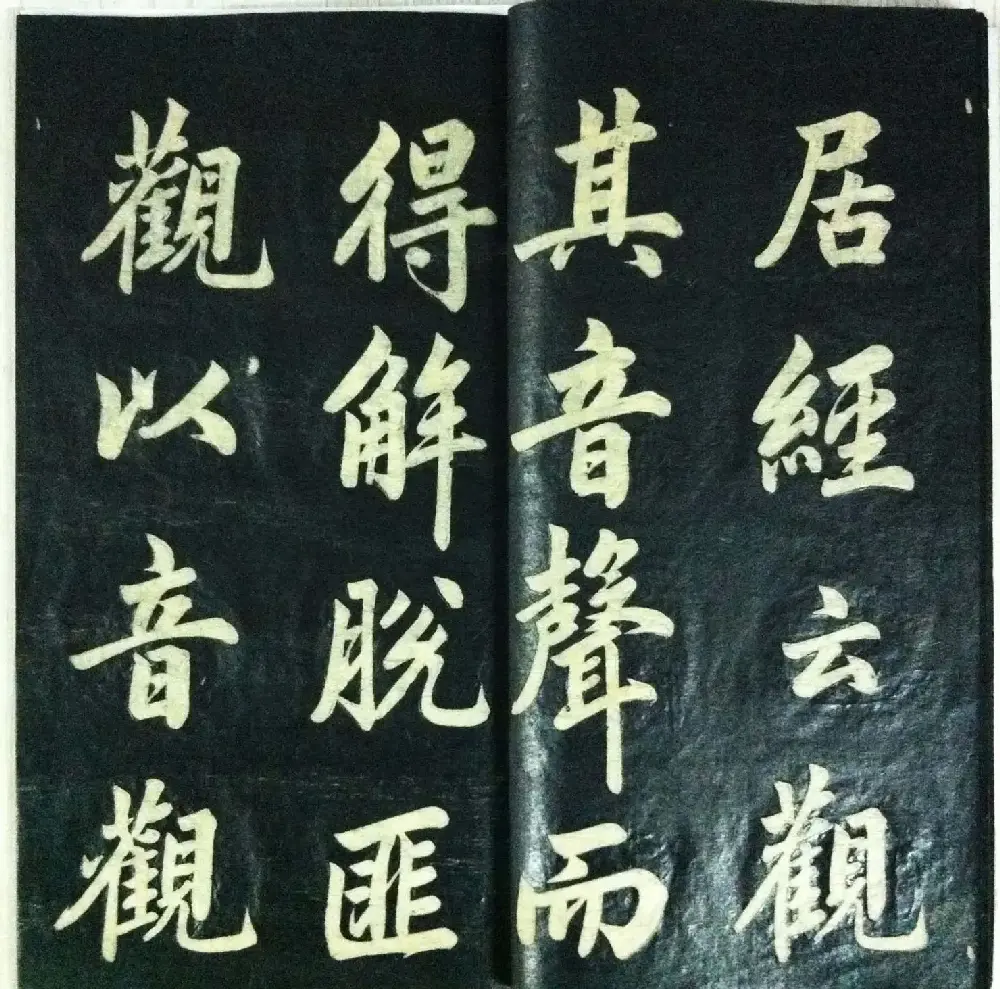 居經云觀
其音聲而
得解脫匪
觀以音觀